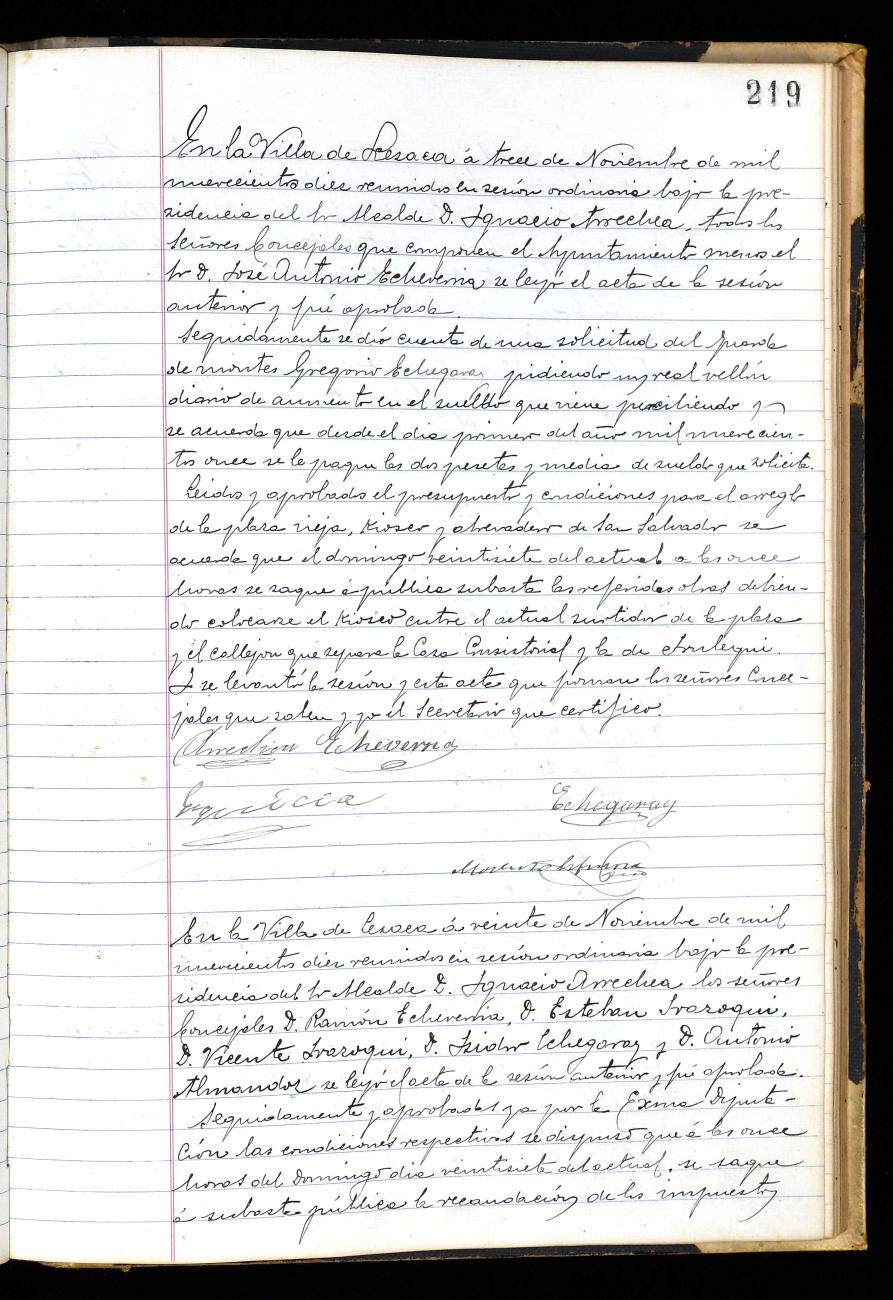 219
En la Villa de Lesaca á trece de Noviembre de mil
novecientos diez reunidos en sesión ordinaria bajo la pre-
sidencia del Sr Alcalde D. Ignacio Arrechea, todos los
Señores Concejales que componen el Ayuntamiento menos el
Sr D. José Antonio Echeverria se leyó el acta de la sesión
anterior y fué aprobada.
Seguidamente se dió cuenta de una solicitud del guarda
de montes Gregorio Echegaray pidiendo un real vellón
diario de aumento en el sueldo que viene percibiendo y
se acuerda que desde el dia primero del año mil novecien-
tos once se le pague las dos pesetas y media de sueldo que solicita.
Leidos y aprobados el presupuesto y condiciones para el arreglo
de la plaza vieja, Kiosco y abrevadero de San Salvador se
acuerda que el domingo veintisiete del actual a las once
horas se saque á pública subasta las referidas obras debien-
do colocarse el Kiosco entre el actual surtidor de la plaza
y el callejon que separa la Casa Consistorial y la de
Y se levantó la sesión y esta acta que forman los señores Conce-
jales que saben y yo el Secretario que certifico.
Arrechea Echeverria
Echegaray
En la Villa de Lesaca á veinte de Noviembre de mil
novecientos diez reunidos en sesión ordinaria bajo la pre-
sidencia del Sr Alcalde D. Ignacio Arrechea los señores
Concejales D. Ramón Echeverría, D. Esteban Ivazoqui,
D. Vicente Ivazoqui, D. Isidro Echegaray y D. Antonio
Almandoz se leyó el acta de la sesión anterior y fué aprobada.
Seguidamente y aprobadas ya por la Exma Diputa-
ción las condiciones respectivas se dispuso que á las once
horas del Domingo dia veintisiete del actual, se saque
á subasta pública la recaudación de los impuestos